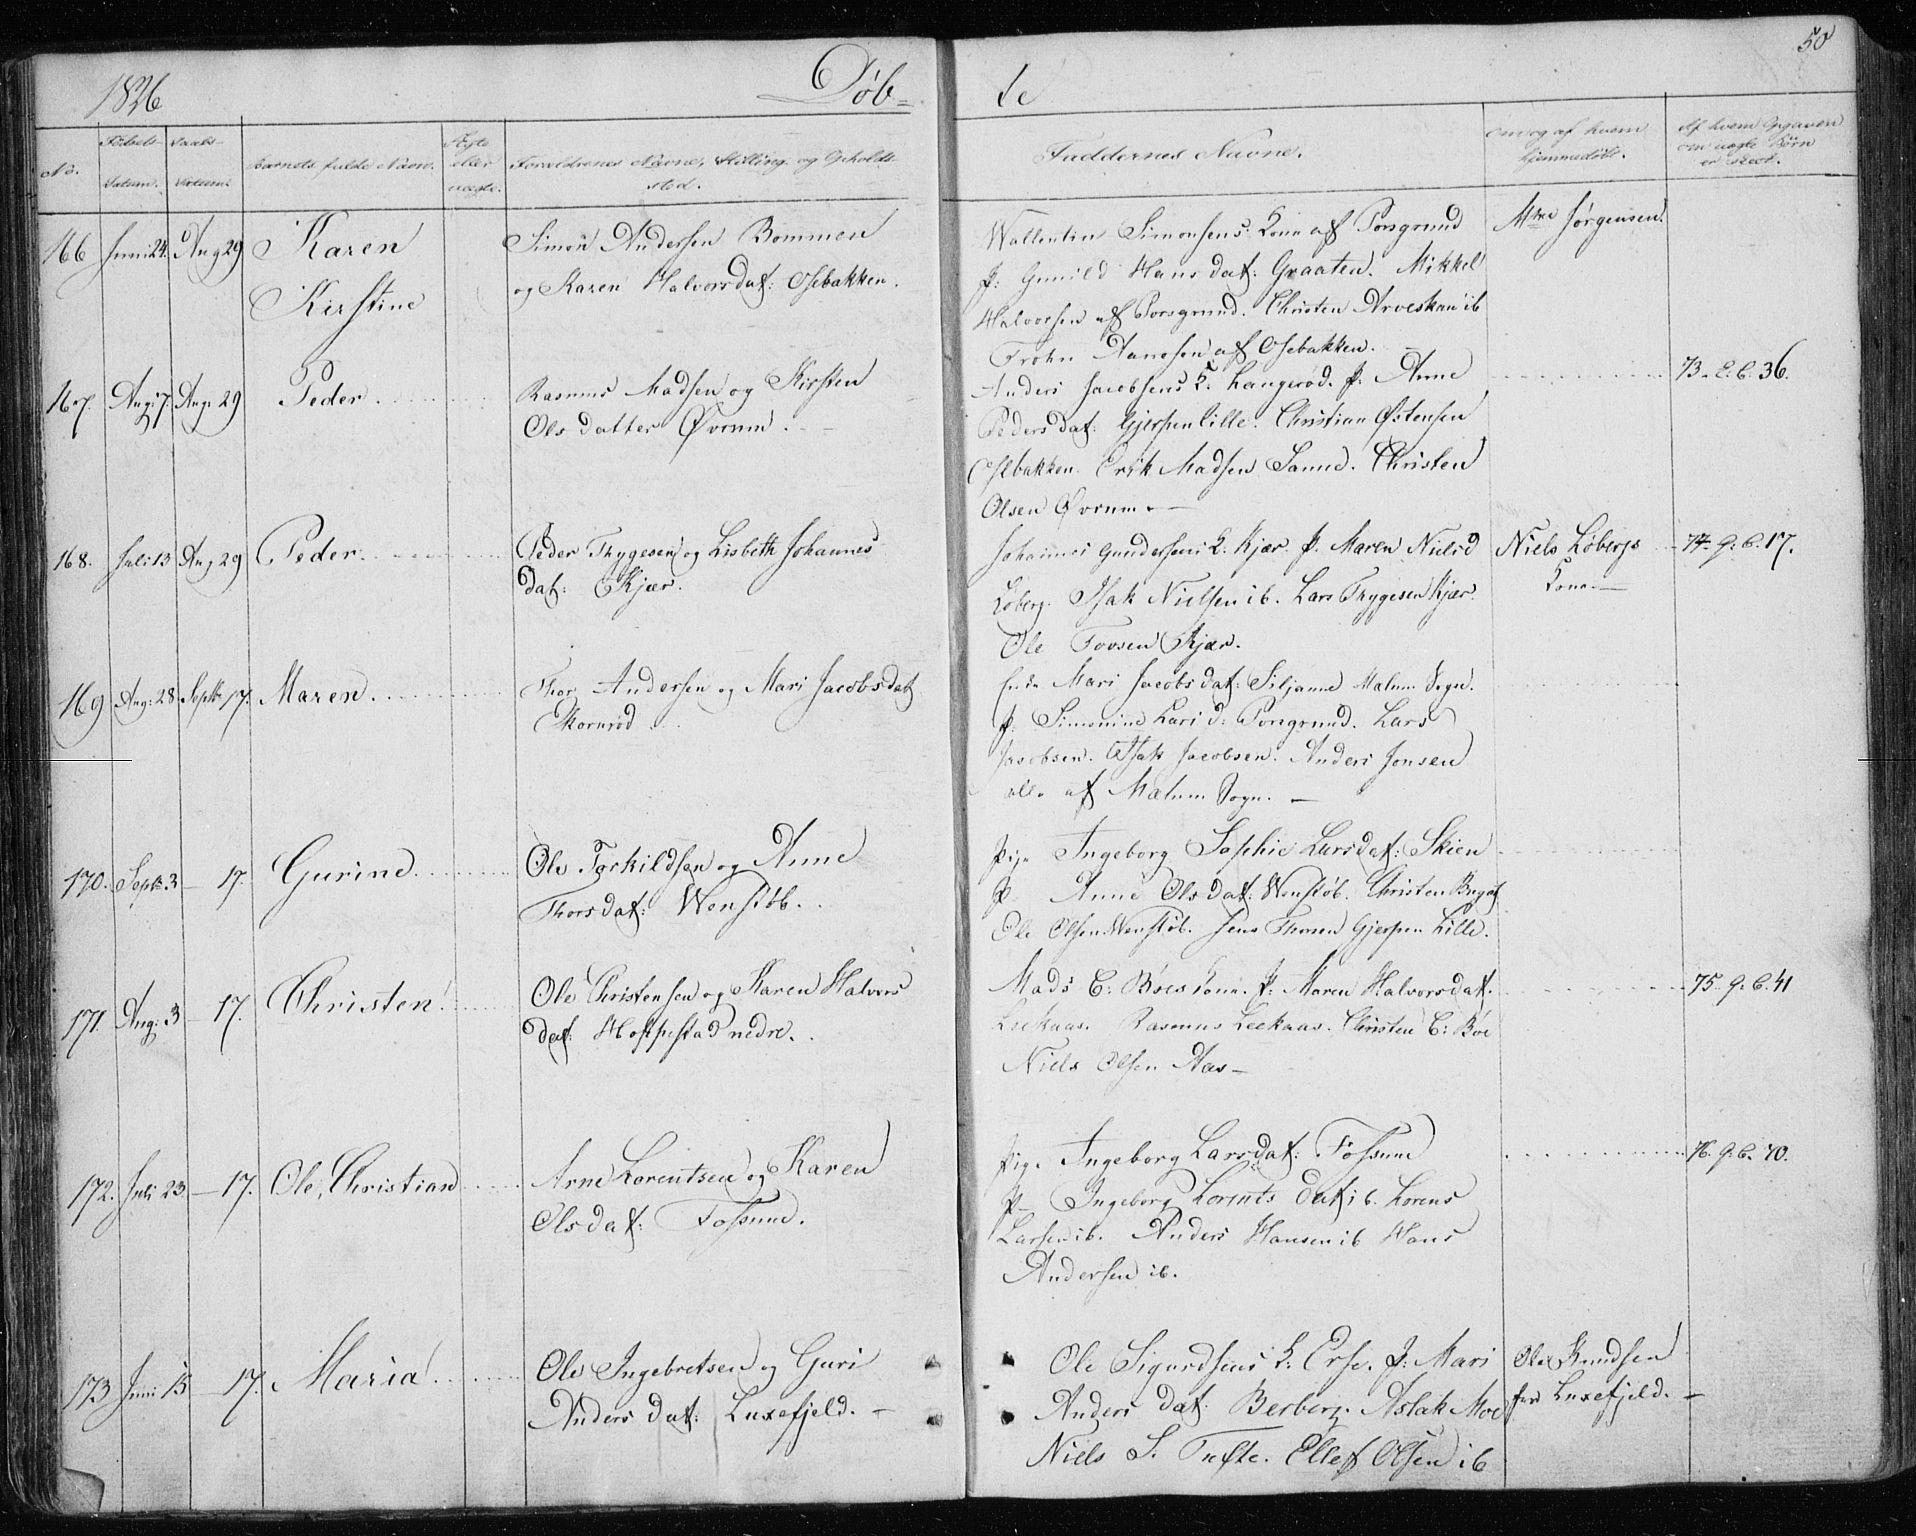 50
1826
Døb=
te
No.
Fødsels-
Datum.
Daabs-
Datum.
Barnets fulde Navn.
Ægte
eller
uægte.
Forældrenes Navne, Stilling og Opholds-
sted.
Faddernes Navne.
Om og af hvem
hjemmedøbt.
Af hvem Opgaven
om uægte Børn
er skeet.
166 Juni 24. Aug 29 Karen
Kirstine
Simon Andersen Bommen
og Karen Halvorsdat: Osebakken.
Wallentin Simonsens Kone af Porsgrund
P: Gunild Hansdat: Graaten. Mikkel
Halvorsen af Porsgrund. Christen Arveskan ib
Frohn Aanesen af Osebakken.
Mdme Jørgensen.
167. Aug: 7. Aug. 29 Peder.
Rasmus Madsen og Kirsten
Olsdatter Øvrum.
Anders Jacobsens K. Langerød. P: Anne
Pedersdat: Gjerpen lille. Christian Østensen
Osebakken. Erik Madsen Sanne. Christen
Olsen Øvrum. —
73. 36.
168. Juli 13 Aug 29 Peder.
Peder Thygesen og Lisbeth Johannes
dat: Kjær.
Johannes Gundersens K. Kjær. P. Maren Nielsd
Løberg. Isak Nielsen ib. Lars Thygesen Kjær.
Ole Tovsen Kjær.
Niels Løbergs
Kone. —
74. 9. C. 17.
169 Aug: 28 Septbr 17. Maren.
Thor Andersen og Mari Jacobsdat
Skornrød
Enke Mari Jacobsdat: Siljanne Melum Sogn.
P. Simonine Larsd: Porsgrund. Lars
Jacobsen. Isak Jacobsen. Anders Jonsen
alle af Melum Sogn. —
170. Septbr 3 — 17. Gurine.
Ole Torkildsen og Anne
Thorsdat: Wenstøb.
Pige Ingeborg Sophie Larsdat: Skien
P. Anne Olsdat: Wenstøb. Christen
Ole Olsen Wenstøb. Jens Thorsen Gjerpen Lille.
171. Aug: 3 — 17. Christen.
Ole Christensen og Karen Halvors
dat: Hoppestad nedre.
Mads C: Bøes Kone. P: Maren Halvorsdat.
Leekaas. Rasmus Leekaas. Christen C: Bøe
Niels Olsen Aas —
75. 9. C. 41
172. Juli 23. — 17. Ole Christian
Arne Lorentsen og Karen
Olsdat: Fossum.
Pige Ingeborg Larsdat: Fossum
P. Ingeborg Lorentsdat ib. Lorens
Larsen ib. Anders Hansen ib Hans
Andersen ib.
76. 9. C. 70.
173 Juni 15 — 17. Maria.
Ole Ingebretsen og Guri
Andersdat: Luxefjeld. —
Ole Sigurdsens K. P: Mari
Andersdat: Berberg. Aslak Moe
Niels S. Tufte. Ellef Olsen ib
Ole Knudsen
Luxefjeld. —